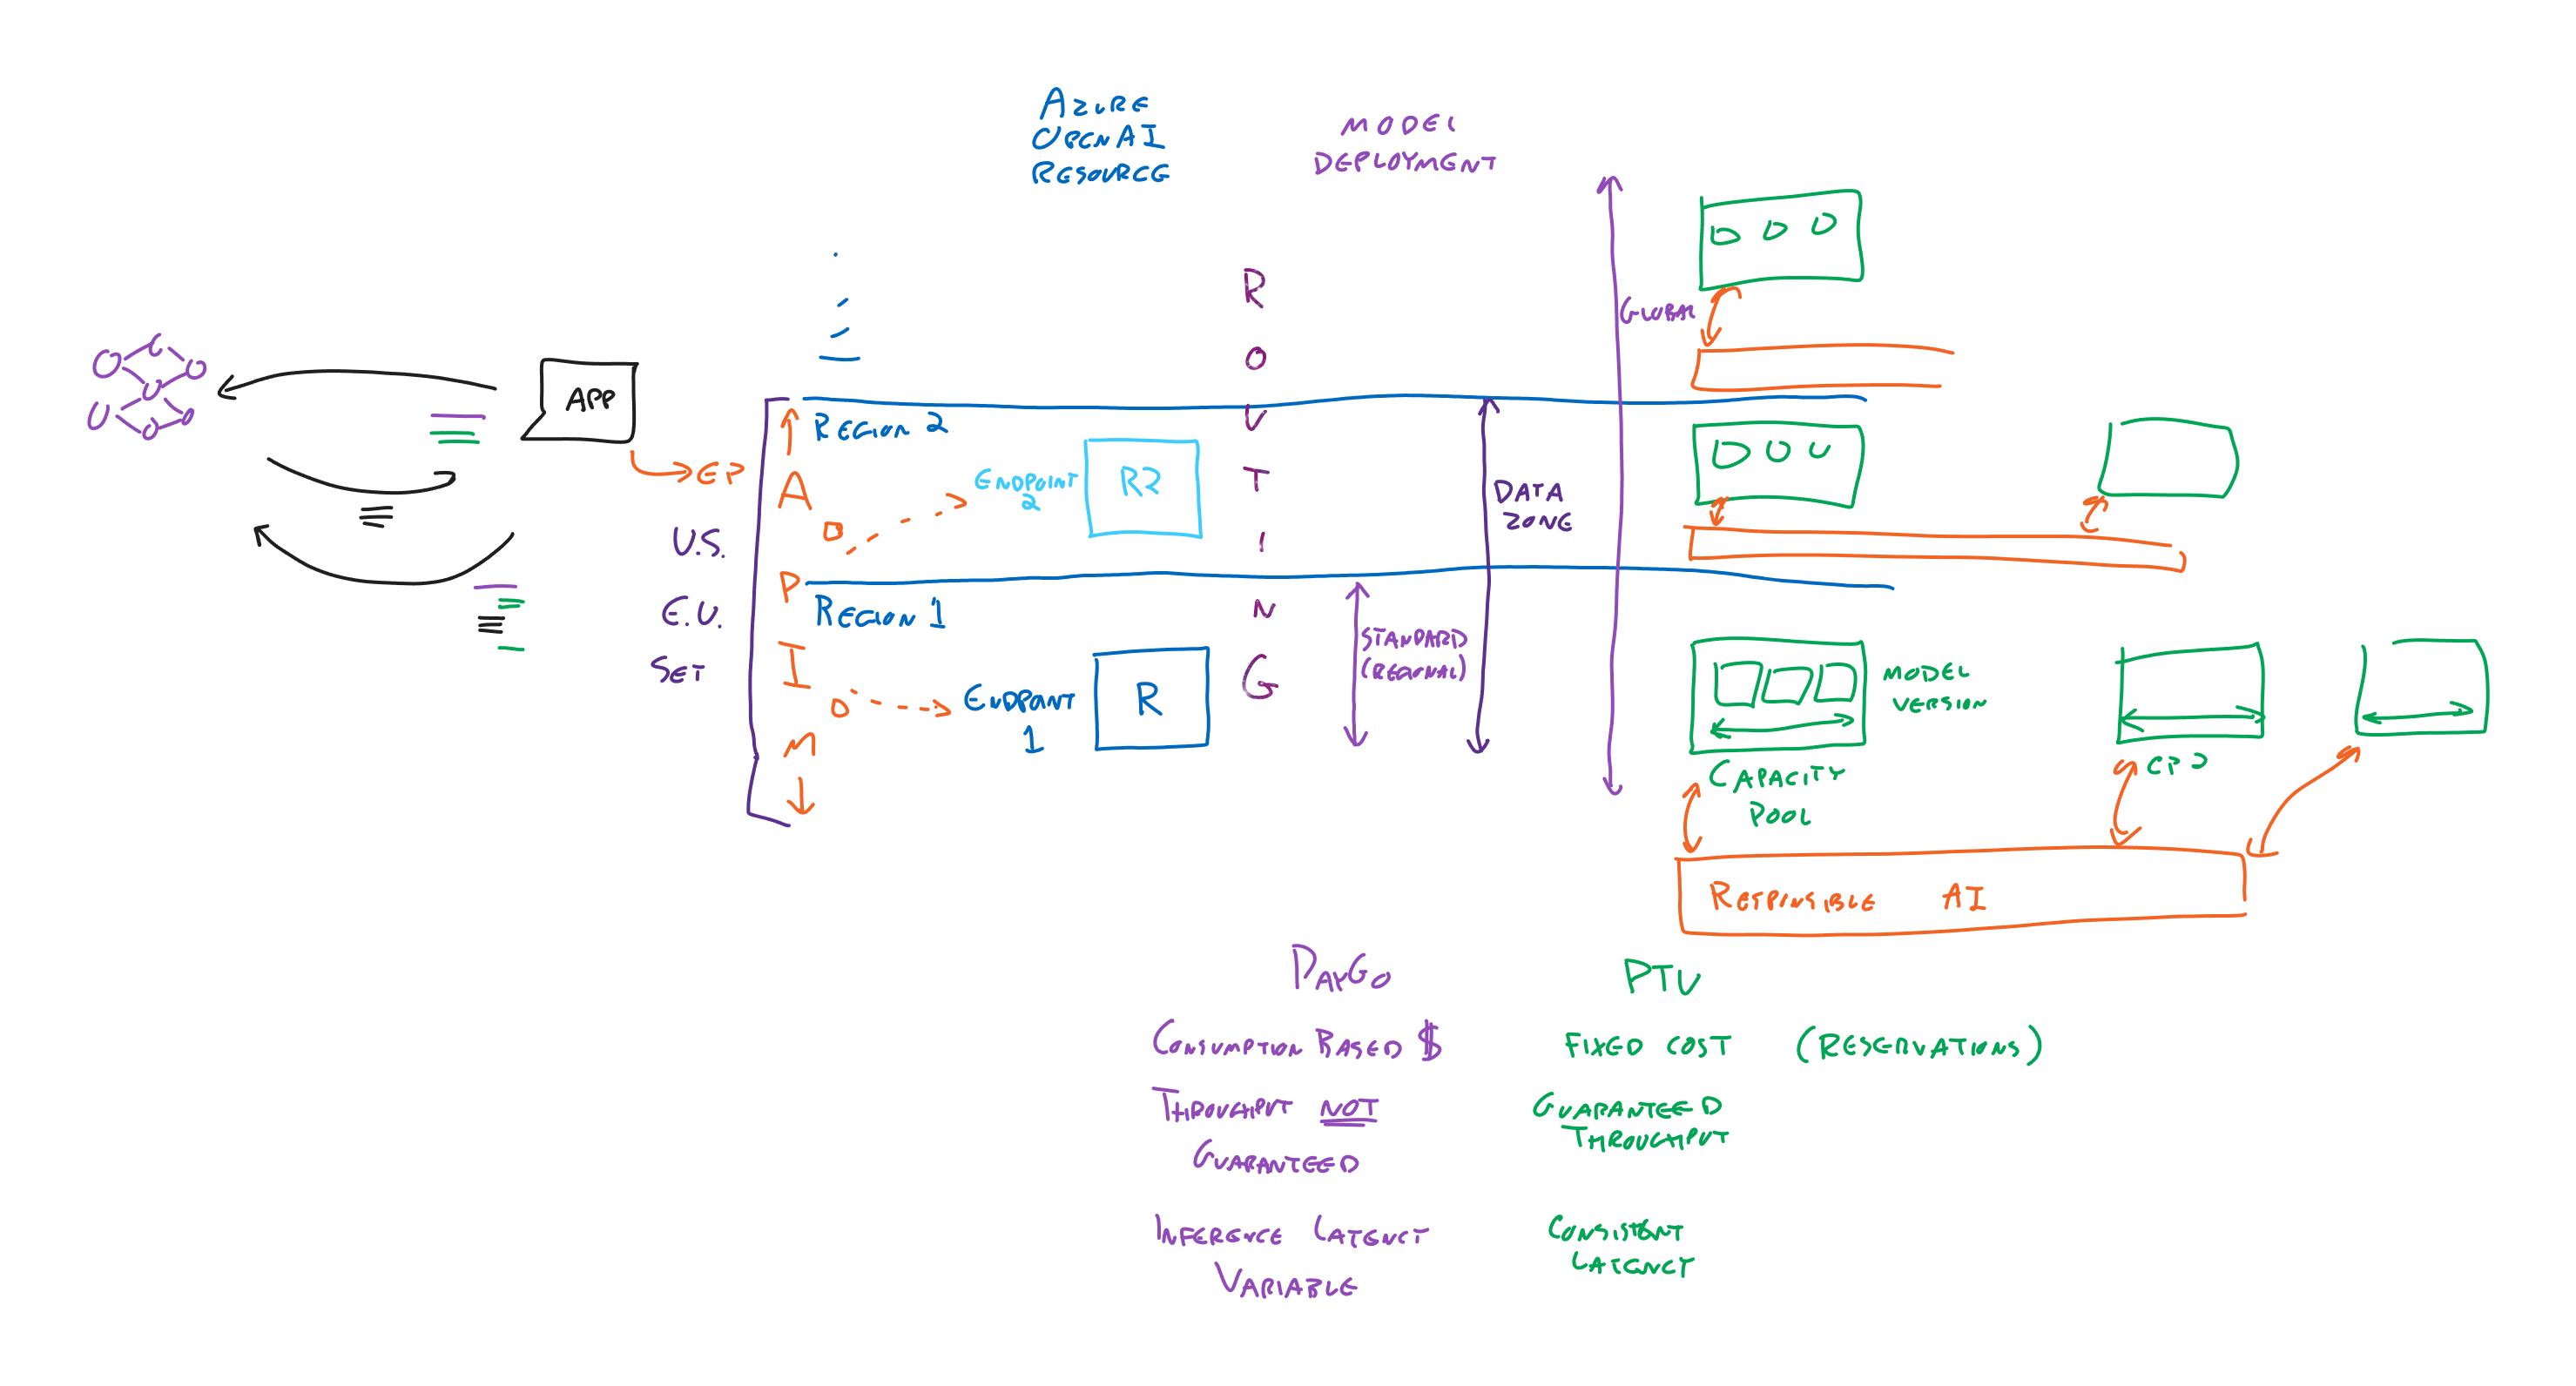 AZURE
OPENAI
RESOURCE
MODEL
DEPLOYMENT
ROUTING
GLOBAL
APP
EP
U.S.
E.U.
SET
APIM
REGION 2
ENDPOINT
2
R2
DATA
ZONE
REGION 1
ENDPOINT
1
R
STANDARD
(REGIONAL)
MODEL
VERSION
CAPACITY
POOL
CP2
RESPONSIBLE AI
PAYGO
CONSUMPTION BASED $
THROUGHPUT NOT
GUARANTEED
INFERENCE LATENCY
VARIABLE
PTU
FIXED COST (RESERVATIONS)
GUARANTEED
THROUGHPUT
CONSISTENT
LATENCY